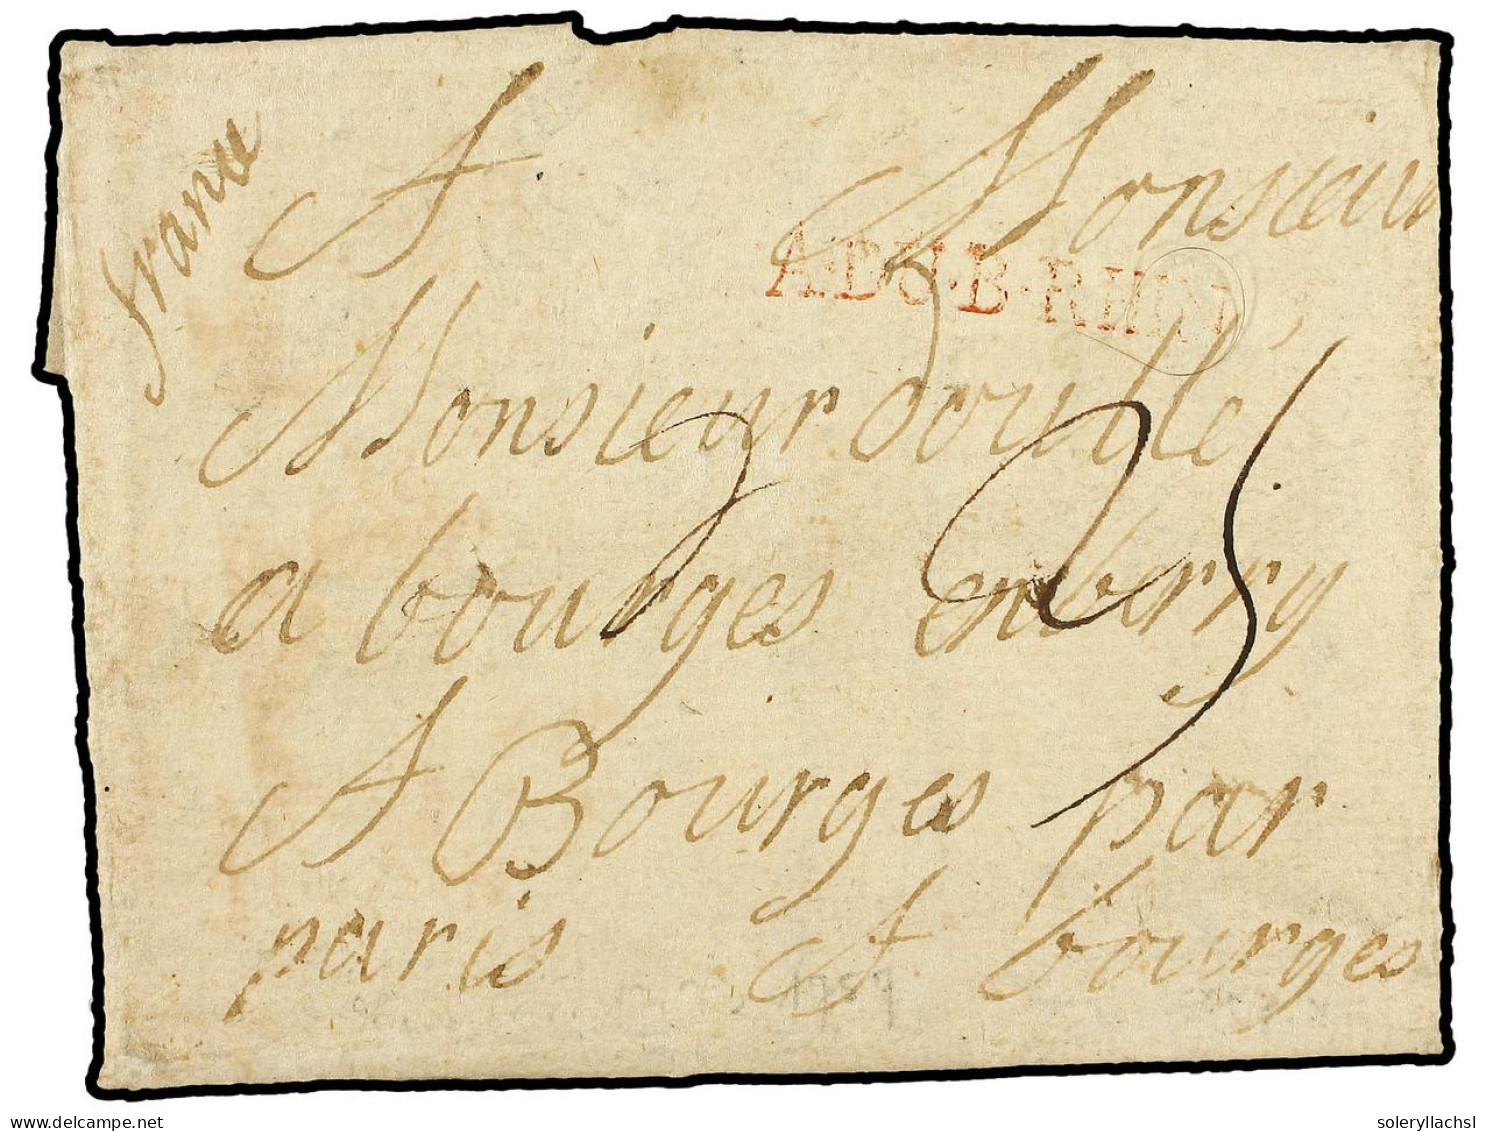 franc
A Monsieur
A.DU.B.RHIN
Monsieur doullé
a bourges enberry
A Bourges par
paris A bourges
25
delcampe.net
soleryllachsl